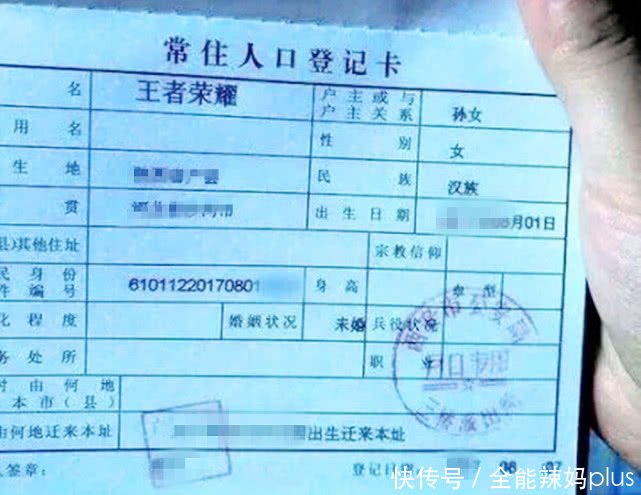 常住人口登记卡
名 王者荣耀 户主或与户主关系 孙女
用名 性别 女
生地 民族 汉族
贯 出生日期 月01日
县)其他住址 宗教信仰
民身份件编号 61011220170801 身高 血型
化程度 婚姻状况 未婚 兵役状况
务处所 职业
时由何地本市(县)
由何地迁来本址 出生迁来本址
人签章: 登记日期:
快传号 / 全能辣妈plus